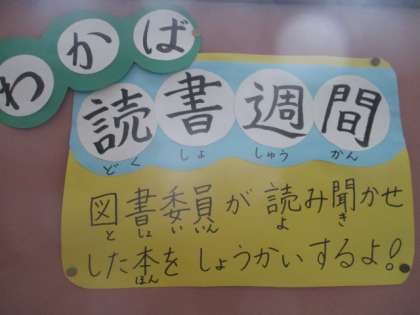 わかば
読書週間
どくしょしゅうかん
図書委員が読み聞かせ
としょいいんよき
した本をしょうかいするよ!
ほん